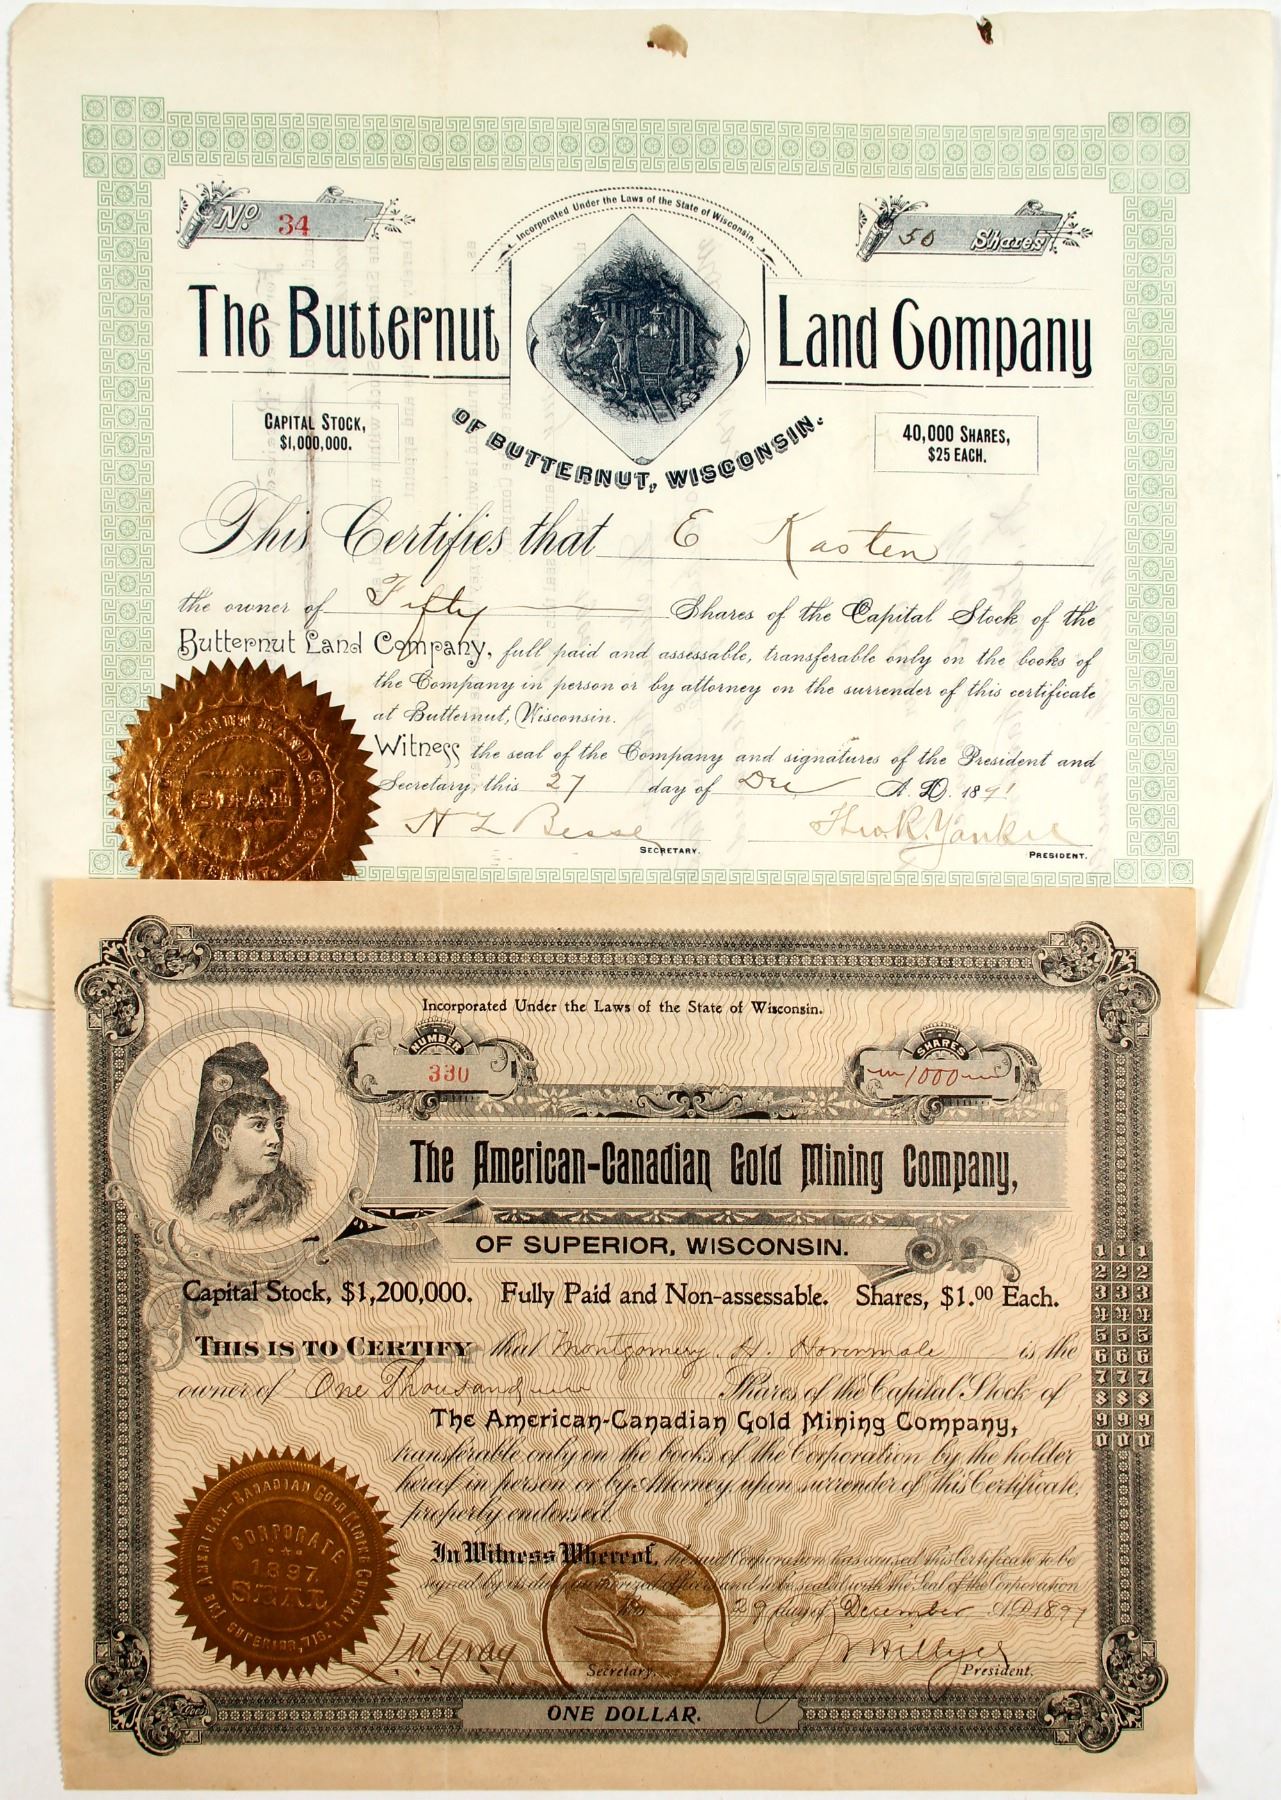 Incorporated Under the Laws of the State of Wisconsin.
No. 34
50 Shares
The Butternut Land Company
OF BUTTERNUT, WISCONSIN.
CAPITAL STOCK,
$1,000,000.
40,000 SHARES,
$25 EACH.
This Certifies that E Kasten
the owner of Fifty Shares of the Capital Stock of the
Butternut Land Company, full paid and assessable, transferable only on the books of
the Company in person or by attorney on the surrender of this certificate
at Butternut, Wisconsin.
Witness the seal of the Company and signatures of the President and
Secretary, this 27 day of Dec A. D. 1891
SEAL
H L Besse
SECRETARY.
Theo R. Yankee
PRESIDENT.
Incorporated Under the Laws of the State of Wisconsin.
NUMBER
330
SHARES
1000
The American-Canadian Gold Mining Company,
OF SUPERIOR, WISCONSIN.
Capital Stock, $1,200,000. Fully Paid and Non-assessable. Shares, $1.00 Each.
THIS IS TO CERTIFY that Montgomery H. is the
owner of One Thousand Shares of the Capital Stock of
The American-Canadian Gold Mining Company,
transferable only on the books of the Corporation by the holder
hereof in person or by Attorney, upon surrender of This Certificate,
properly endorsed.
In Witness Whereof, the said Corporation has caused this Certificate to be
signed by its duly authorized officers and to be sealed with the Seal of the Corporation
this 29 day of December A.D. 1897
1 1 1
2 2 2
3 3 3
4 4 4
5 5 5
6 6 6
7 7 7
8 8 8
9 9 9
0 0 0
THE AMERICAN-CANADIAN GOLD MINING COMPANY.
CORPORATE
1897
SEAL
SUPERIOR, WIS.
L M Gray
Secretary.
J Hillyer
President.
ONE DOLLAR.